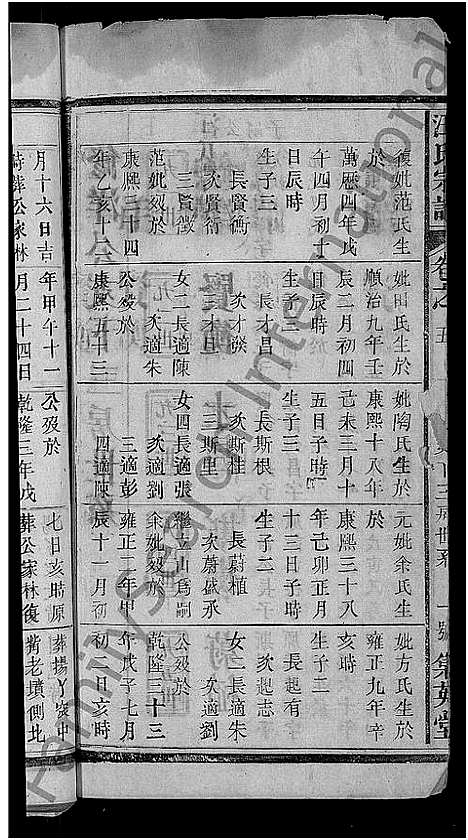 汪氏宗譜
卷之
五
世系
一號 集英堂
復妣范氏生
於
萬歷四年戊
午四月初十
日辰時
生子三
長賢衛
次賢術
三賢徵
范妣歿於
康熙二十四
年乙亥十二
月十六日吉
時葬公家林
妣田氏生於
順治九年壬
辰二月初四
日辰時
生子三
次才發
三才昌
女二長適陳
次適朱
公歿於
康熙五十三
年甲午十一
月二十四日
妣陶氏生於
康熙十八年
己未三月十
五日子時
生子三
長斯根
次斯桂
三斯里
女四長適張
次適劉
三適彭
四適陳
公歿於
乾隆三年戊
元妣余氏生
於
康熙三十八
年己卯正月
十三日子時
生子二
長蔚植
次蔚盛承
繼立山為嗣
余妣歿於
雍正二年甲
辰十一月初
七日亥時原
葬公家林復
妣方氏生於
雍正九年辛
亥時
生子二
長起有
次起志
女二長適朱
次適劉
公歿於
乾隆三十三
年戊子七月
初二日亥時
葬楊丫安中
嘴老墳側北
Family Search International